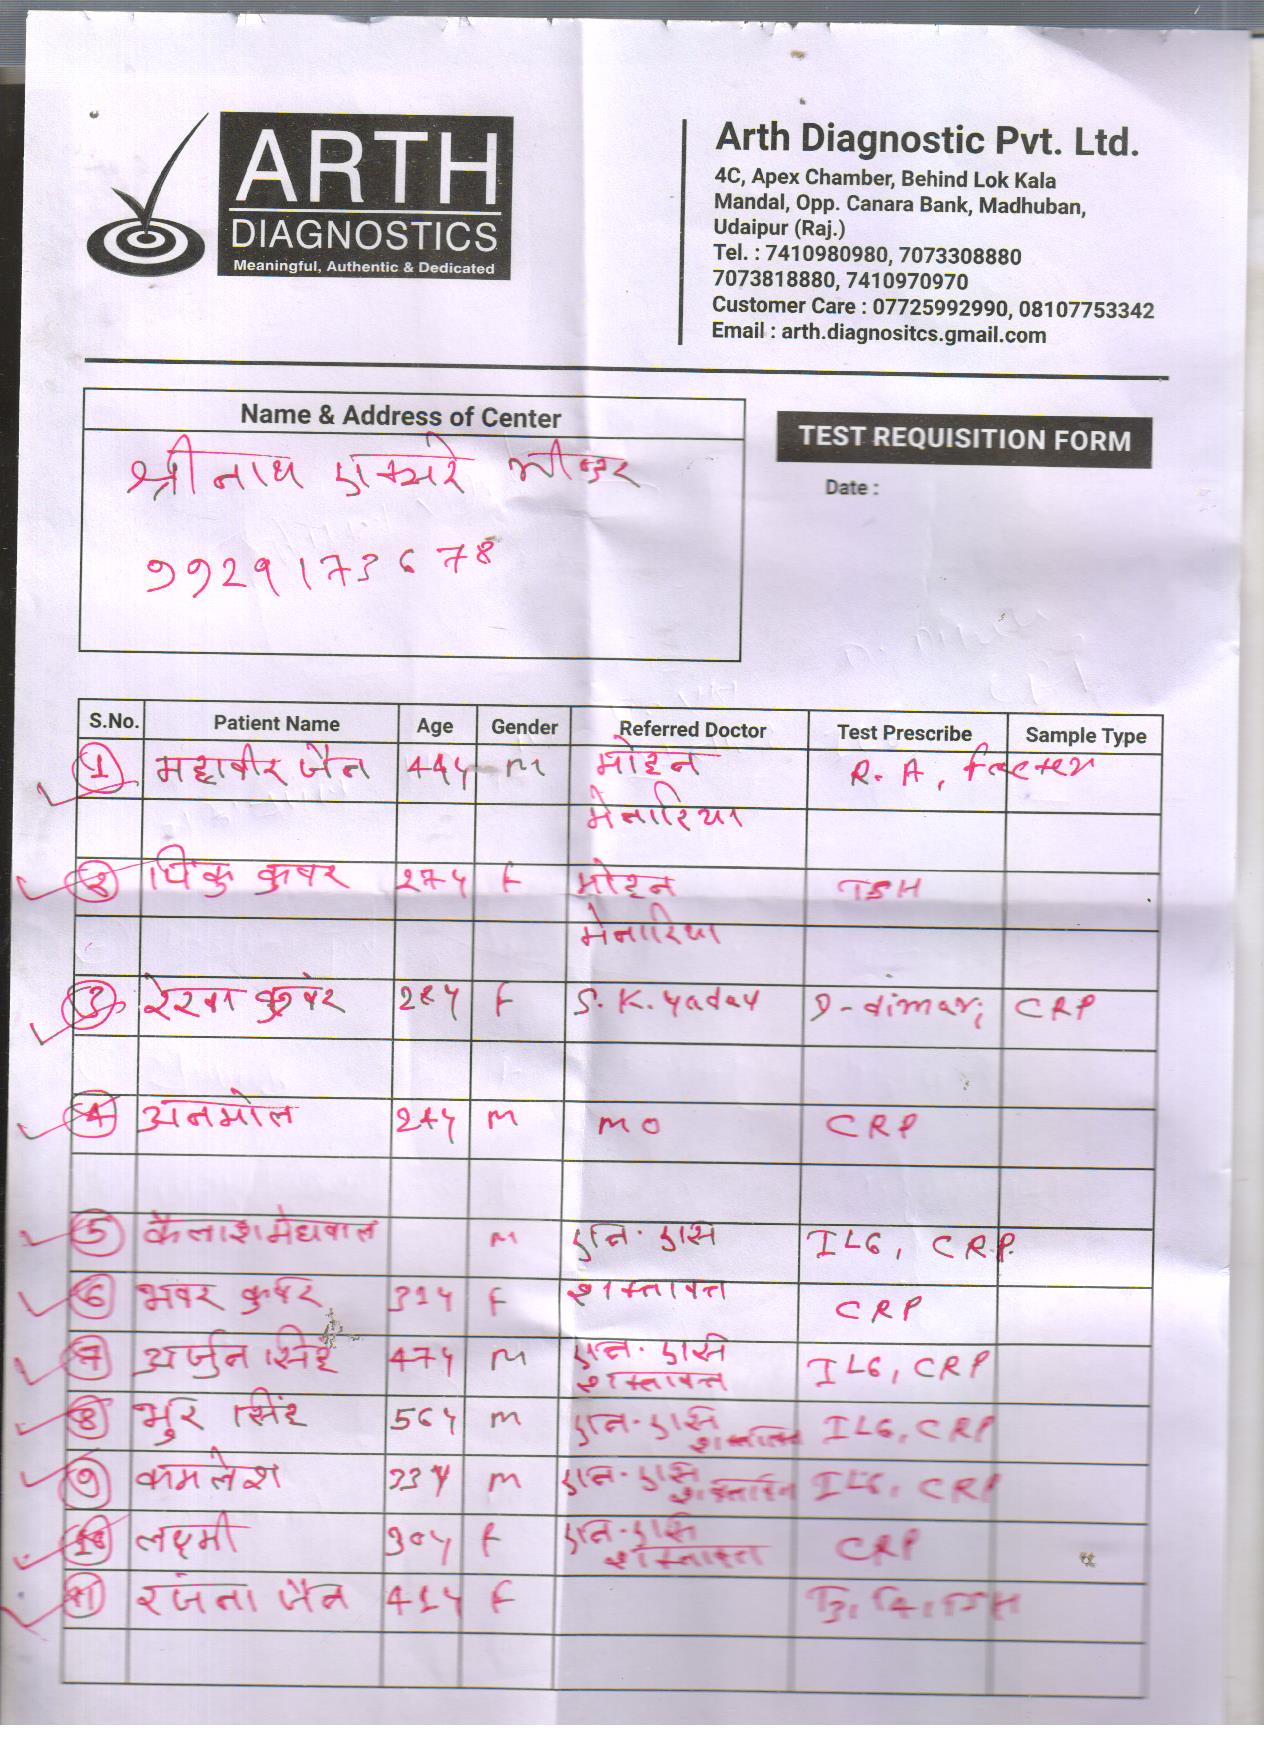 ARTH
DIAGNOSTICS
Meaningful, Authentic & Dedicated
Arth Diagnostic Pvt. Ltd.
4C, Apex Chamber, Behind Lok Kala
Mandal, Opp. Canara Bank, Madhuban,
Udaipur (Raj.)
Tel. : 7410980980, 7073308880
7073818880, 7410970970
Customer Care : 07725992990, 08107753342
Email : arth.diagnositcs.gmail.com
Name & Address of Center
श्रीनाथ एक्सरे भीण्डर
9929173678
TEST REQUISITION FORM
Date :
S.No. Patient Name Age Gender Referred Doctor Test Prescribe Sample Type
1 महावीर जैन 44y m मोहन R.A, factor
मेनारिया
2 पिंकु कुवर 27y F मोहन TSH
मेनारिया
3 रेखा कुवंर 28y F S.K. yadav D-dimar, CRP
4 अनमोल 24y M MO CRP
5 कैलाश मेघवाल m एन. एस ILG, CRP.
6 भवर कुवंर 31y F शक्तावत CRP
7 अर्जुन सिंह 47y M एन. एस ILG, CRP
शक्तावत
8 भुर सिंह 56y M एन. एस शक्तावत ILG, CRP
9 कमलेश 33y M एन. एस शक्तावत ILG, CRP
10 लक्ष्मी 30y F एन. एस CRP
शक्तावत
11 रंजना जैन 41y F T3, T4, TSH